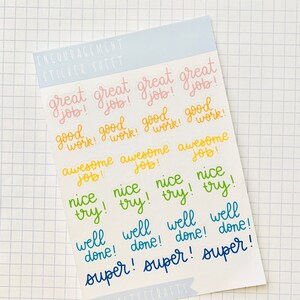 ENCOURAGEMENT
STICKER SHEET
great job! great job! great job! great job!
good work! good work! good work! good work!
awesome job! awesome job! awesome job!
nice try! nice try! nice try! nice try!
well done! well done! well done! well done!
super! super! super!